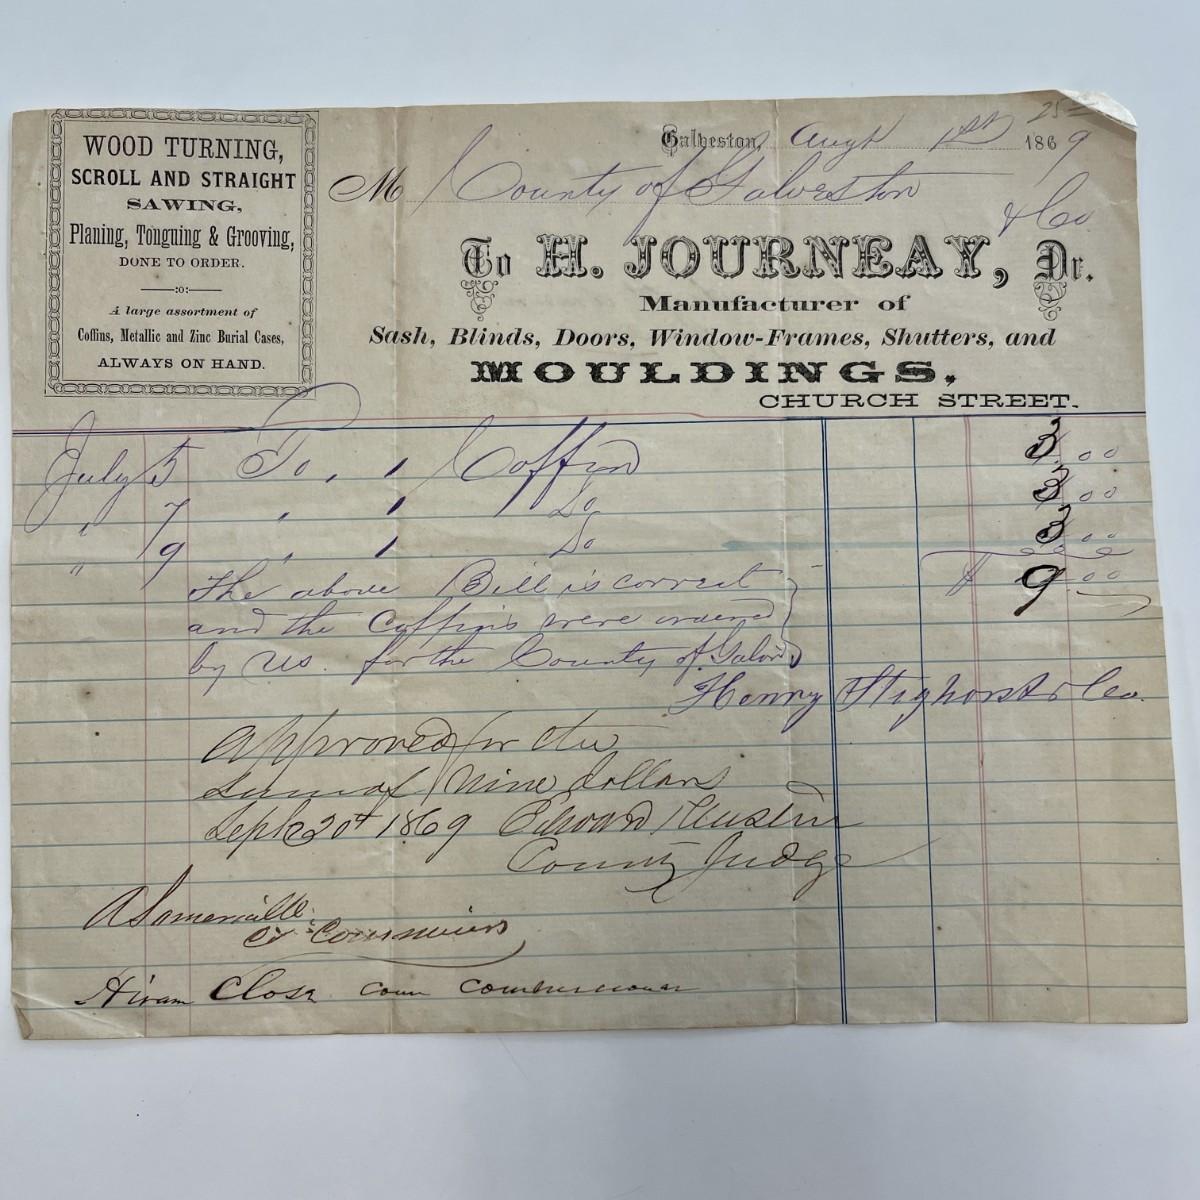 WOOD TURNING,
SCROLL AND STRAIGHT
SAWING,
Planing, Tonguing & Grooving,
DONE TO ORDER.
—:o:—
A large assortment of
Coffins, Metallic and Zinc Burial Cases,
ALWAYS ON HAND.
25
Galveston, Augt 1st 1869
M County of Galveston
To H. JOURNEAY, & Co Dr.
Manufacturer of
Sash, Blinds, Doors, Window-Frames, Shutters, and
MOULDINGS,
CHURCH STREET.
July 5 To , 1 Coffin 3.00
" 7 " 1 Do 3.00
" 9 " 1 Do 3.00
$ 9.00
The above Bill is correct
and the Coffins were ordered
by us. for the County of Galv.
Henry & Co.
Approved for the
sum of Nine dollars
Sept 20t 1869 Edward
County Judge
A Somerville
Hiram Close Coun Commissioner